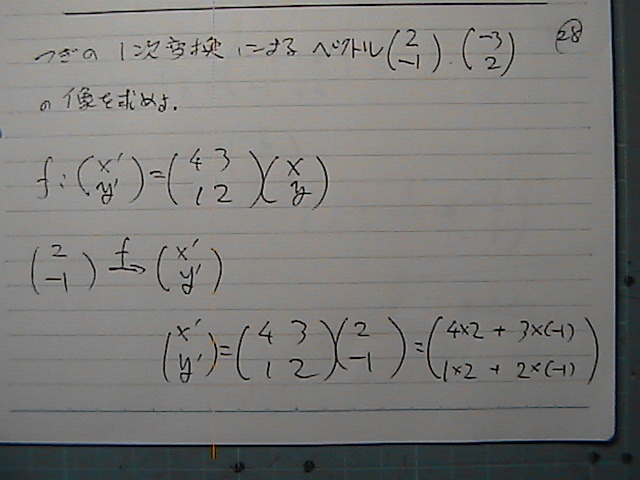 つぎの1次変換によるベクトル(2 -1).(-3 2) 28
の像を求めよ.
f:(x' y')=(4 3 1 2)(x y)
(2 -1) f→ (x' y')
(x' y')=(4 3 1 2)(2 -1)=(4×2+3×(-1) 1×2+2×(-1))